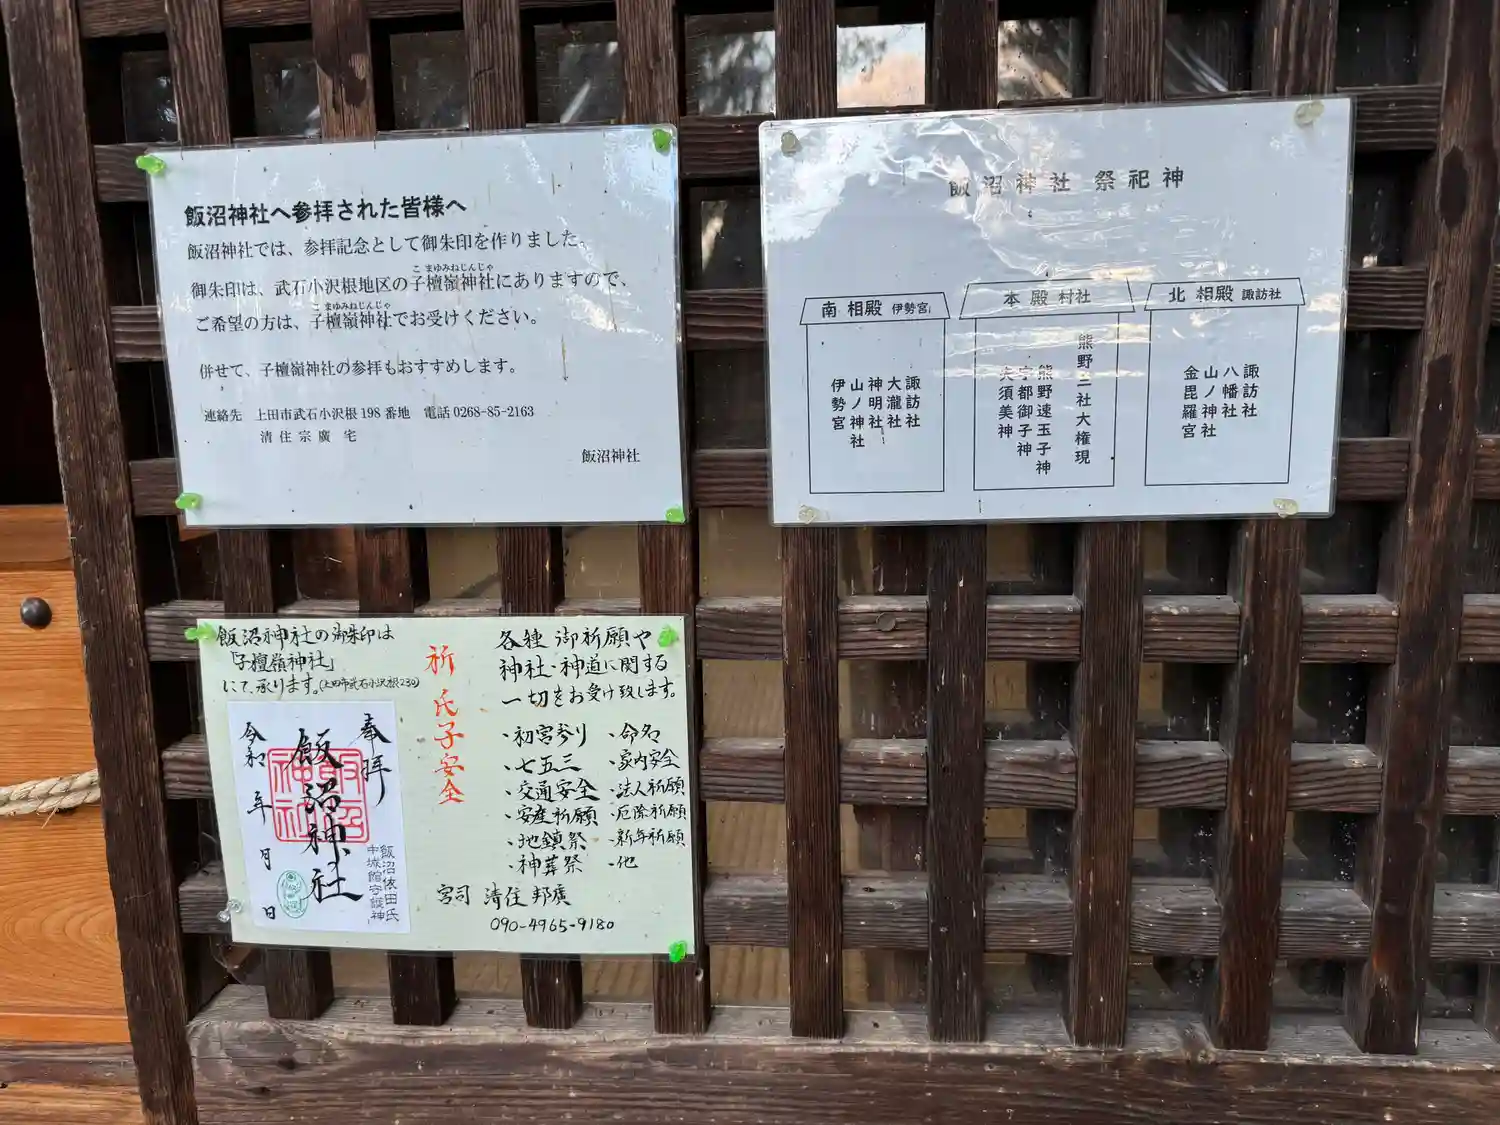 飯沼神社へ参拝された皆様へ
飯沼神社では、参拝記念として御朱印を作りました。
こまゆみねじんじゃ
御朱印は、武石小沢根地区の子檀嶺神社にありますので、
こまゆみねじんじゃ
ご希望の方は、子檀嶺神社でお受けください。
併せて、子檀嶺神社の参拝もおすすめします。
連絡先 上田市武石小沢根198番地 電話0268-85-2163
清住宗廣 宅
飯沼神社
飯沼神社 祭祀神
南 相殿 伊勢宮
諏訪社
大瀧社
神明社
山ノ神社
伊勢宮
本殿 村社
熊野三社大権現
熊野速玉子神
宇都御子神
夫須美神
北 相殿 諏訪社
諏訪社
八幡社
山ノ神社
金毘羅宮
飯沼神社の御朱印は
「子檀嶺神社」
にて承ります。(上田市武石小沢根230)
奉拝
飯沼神社
令和 年 月 日
飯沼依田氏
中城館守護神
祈 氏子安全
各種 御祈願や
神社・神道に関する
一切をお受け致します。
・初宮参り ・命名
・七五三 ・家内安全
・交通安全 ・法人祈願
・安産祈願 ・厄除祈願
・地鎮祭 ・新年祈願
・神葬祭 ・他
宮司 清住 邦廣
090-4965-9180